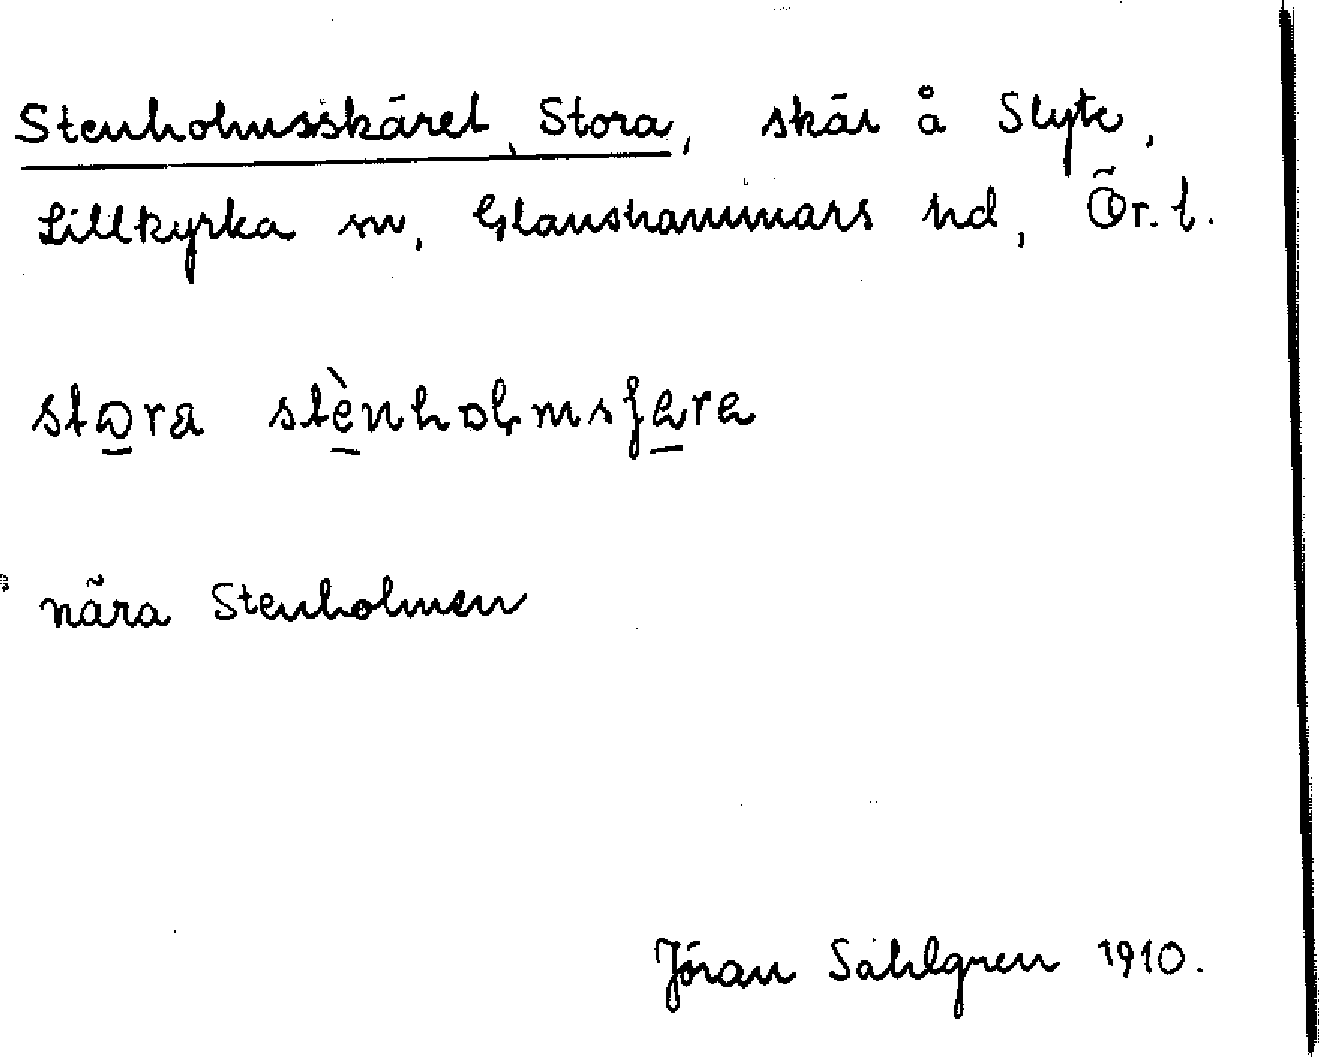 Stenholmsskäret, Stora, skär å Slyte,
Lillkyrka sn, Glanshammars hd, Ör. l.
stora stènholmsʃära
nära Stenholmen
Jöran Sahlgren 1910.